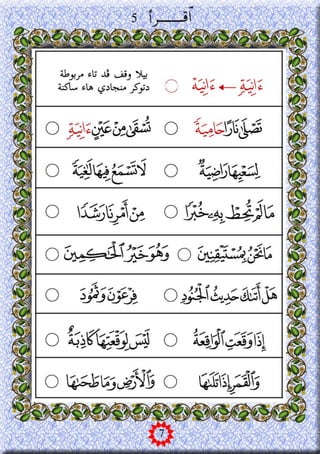 ٱقۡرَأۡ 5
ءَانِيَةٍ ← ءَانِيَهۡ بيلا وقف ڤد تاء مربوطة
دتوكر منجادي هاء ساكنة
تَصۡلَىٰ نَارًا حَامِيَةً تُسۡقَىٰ مِنۡ عَيۡنٍ ءَانِيَةٍ
لِسَعۡيِهَا رَاضِيَةٌ لَا تَسۡمَعُ فِيهَا لَٰغِيَةً
مَا لَمۡ تُحِطۡ بِهِۦ خُبۡرًا مِنۡ أَمۡرِنَا رَشَدًا
مَا نَحۡنُ بِمُسۡتَيۡقِنِينَ وَهُوَ خَيۡرُ ٱلۡحَٰكِمِينَ
هَلۡ أَتَىٰكَ حَدِيثُ ٱلۡجُنُودِ فِرۡعَوۡنَ وَثَمُودَ
إِذَا وَقَعَتِ ٱلۡوَاقِعَةُ لَيۡسَ لِوَقۡعَتِهَا كَاذِبَةٌ
وَٱلۡقَمَرِ إِذَا تَلَىٰهَا وَٱلۡأَرۡضِ وَمَا طَحَىٰهَا
7